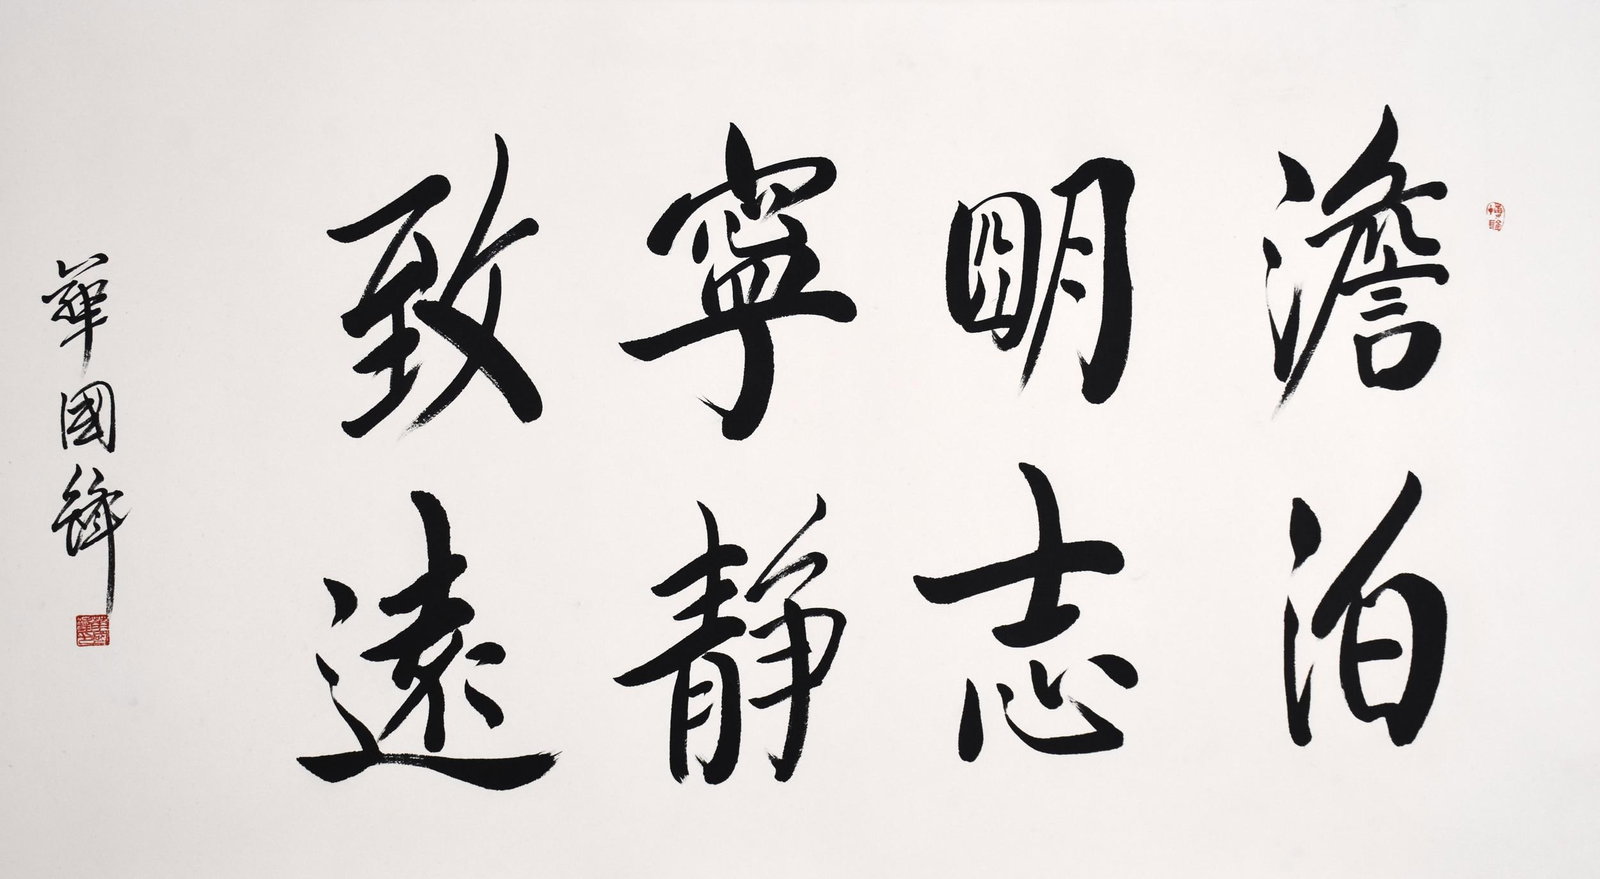 澹泊
明志
寧靜
致遠
華國鋒